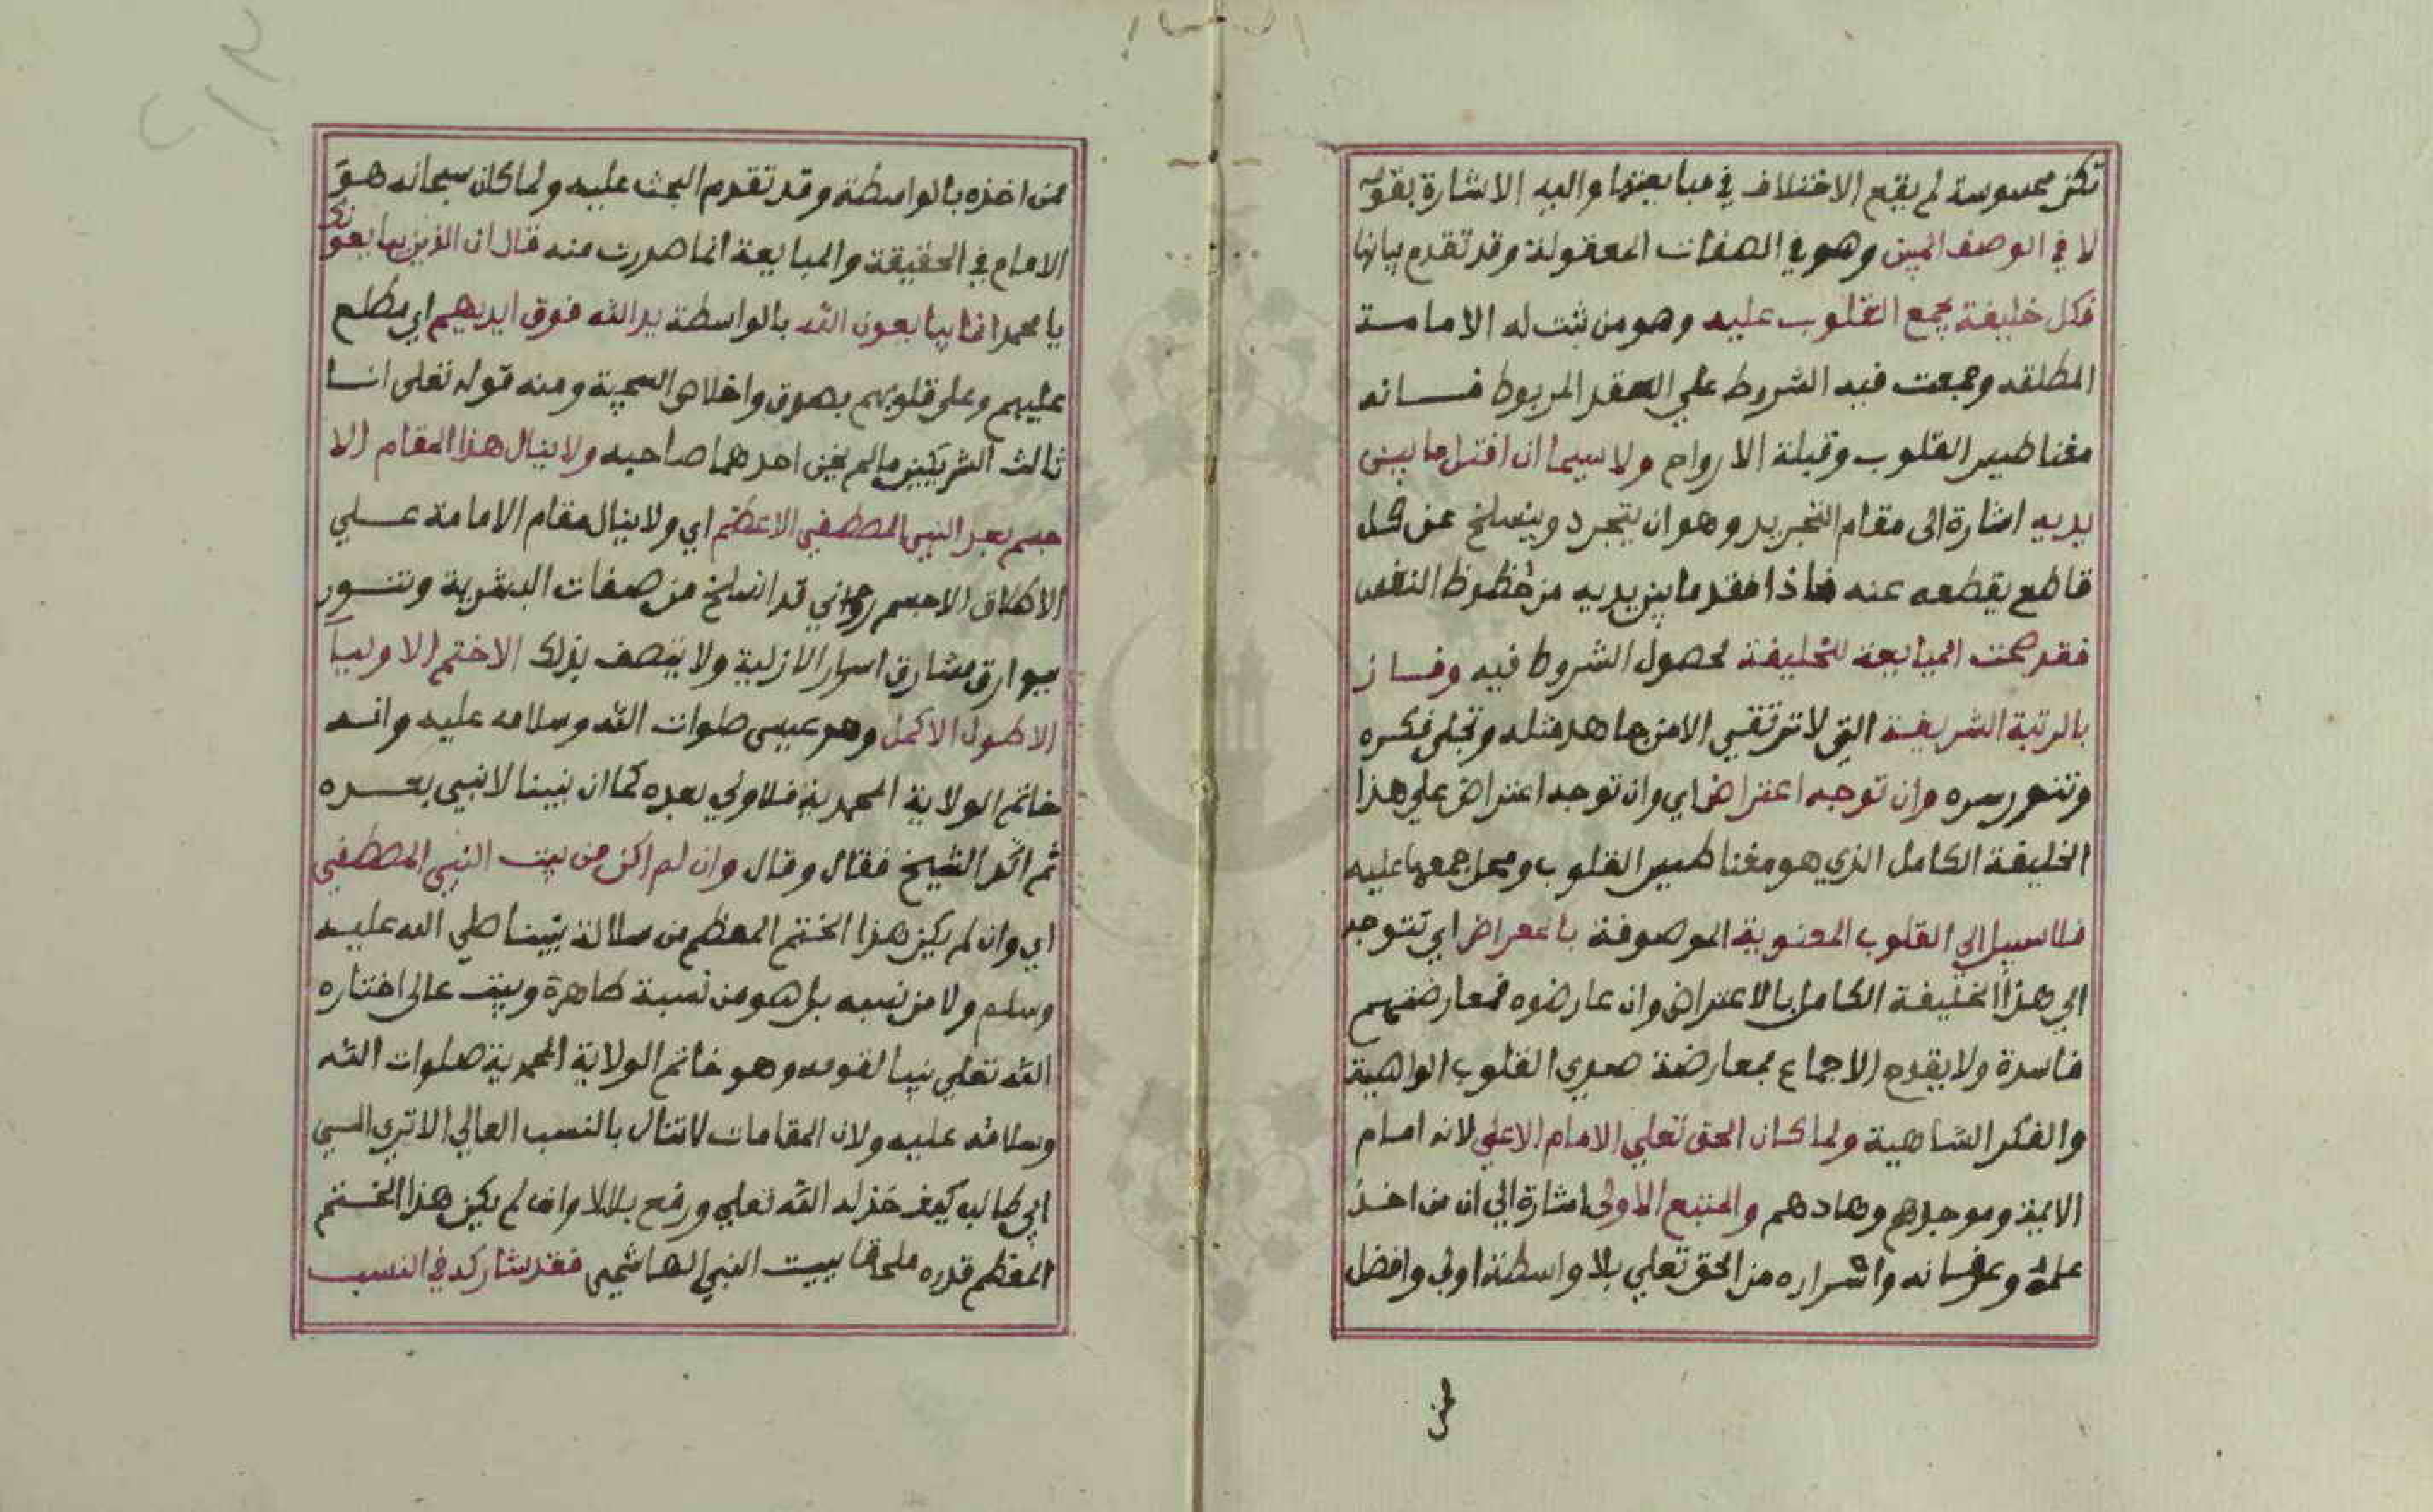 تكن محسوسة لم يقع الاختلاف في مبايعتها واليه الاشارة بقوله
لا في الوصف المبين وهو في الصفات المعقولة وقد تقدم بيانها
فكل خليفة تجمع القلوب عليه وهو من ثبت له الامامة
المطلقه وجمعت فيه الشروط علي العقد المربوط فانه
مغناطيس القلوب وقبلة الارواح ولا سيما ان اختل ما بين
يديه اشارة الى مقام التجريد وهو ان يتجرد وينسلخ عن كل
قاطع يقطعه عنه فاذا فقد ما بين يديه من حظوظ النفس
فقد صحت المبايعة للخليفة لحصول الشروط فيه وفاز
بالرتبة الشريفة التي لا ترتقي الا من جاهد مثله وتجلى فكره
وتنور سره وان توجه اعتراض اي وان توجه اعتراض علي هذا
الخليفة الكامل الذي هو مغناطيس القلوب ومحل جمعها عليه
فلا سبيل الي القلوب المعنوية الموصوفة بالاعراض اي تتوجه
الي هذا الخليفة الكامل بالاعتراض وان عارضوه فمعارضتهم
فاسدة ولا يقدح الاجماع بمعارضة صدي القلوب الواهية
والفكر الشاهية ولما كان الحق تعلي الامام الاعلي لانه امام
الايمة وموجدهم وهادهم والمتبع الاولى اشارة الي ان من اخذ
علمه وعرفانه واسراره من الحق تعلي بلا واسطة اولى وافضل
من
ممن اخذه بالواسطة وقد تقدم البحث عليه ولما كان سبحانه هو
الامام في الحقيقة والمبايعة انما صدرت منه قال ان الذين يبايعونك
يا محمد انما يبايعون الله بالواسطة يد الله فوق ايديهم اي مطلع
عليهم وعلى قلوبهم بصدق واخلاص السجية ومنه قوله تعلى انا
ثالث الشريكين مالم يخن احدهما صاحبه ولا ينال هذا المقام الا
جسم بعد النبي المصطفي الاعظم اي ولا ينال مقام الامامة علي
الاطلاق الا جسم روحاني قد انسلخ من صفات البشرية وتنور
ببوارق مشارق اسرار الازلية ولا يتصف بذلك الا ختم الاوليا
الاطول الاكمل وهو عيسى صلوات الله وسلامه عليه وانه
خاتم الولاية المحمدية فلا ولي بعده كما ان نبينا لا نبي بعده
ثم اكد الشيخ فقال وقال وان لم اكن من بيت النبي المصطفي
اي وان لم يكن هذا الختم المعظم من سلالة نبينا صلي الله عليه
وسلم ولا من نسبه بل هو من نسبة طاهرة وبيت عالي اختاره
الله تعلي نبيا لقومه وهو خاتم الولاية المحمدية صلوات الله
وسلامه عليه ولان المقامات لا تنال بالنسب العالي الا تري الي
ابي طالب كيف خذله الله تعلي ورفع بلالا وان لم يكن هذا الختم
المعظم قدره ملحقا ببيت النبي الهاشمي فقد شاركه في النسب